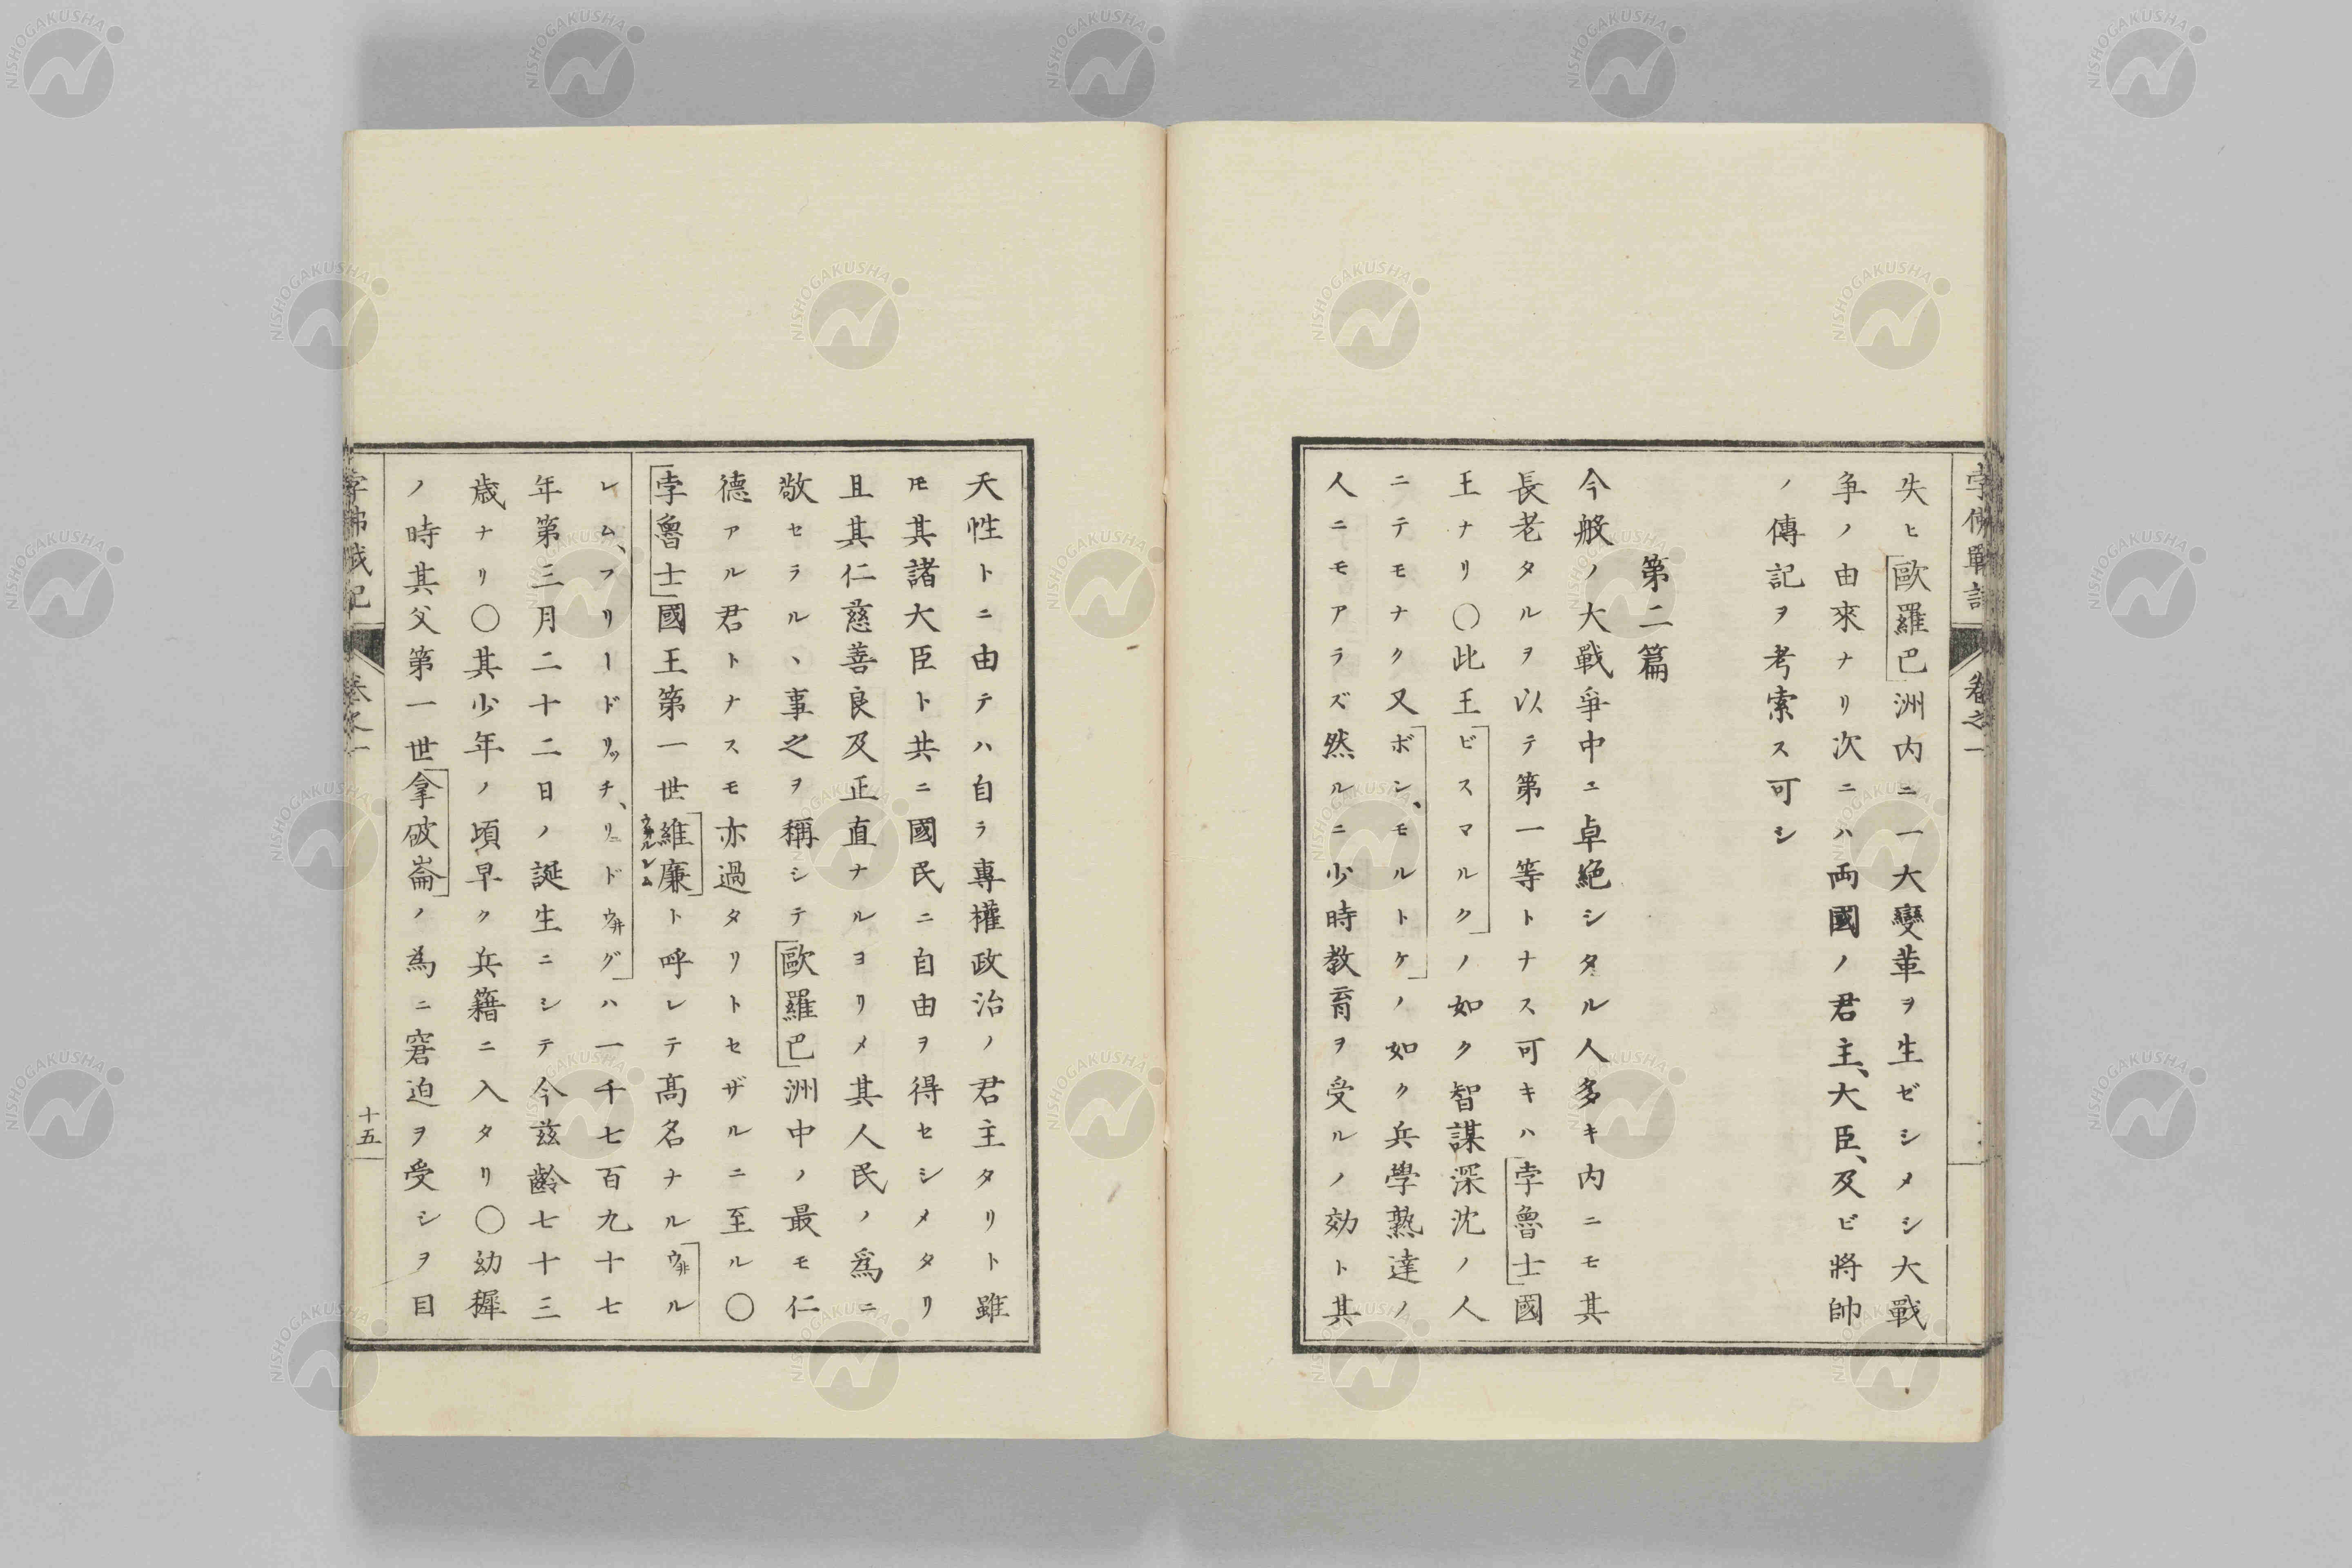 孛佛戰記 卷之一
失ヒ歐羅巴洲内ニ一大變革ヲ生ゼシメシ大戰
争ノ由來ナリ次ニハ両國ノ君主、大臣、及ビ將帥
ノ傳記ヲ考索ス可シ
第二篇
今般ノ大戰爭中ニ卓絶シタル人多キ内ニモ其
長老タルヲ以テ第一等トナス可キハ孛魯士國
王ナリ〇此王ビスマルクノ如ク智謀深沈ノ人
ニテモナク又ボン、モルトケノ如ク兵學熟達ノ
人ニモアラズ然ルニ少時教育ヲ受ルノ効ト其
天性トニ由テハ自ラ專權政治ノ君主タリト雖
𪜈其諸大臣ト共ニ國民ニ自由ヲ得セシメタリ
且其仁慈善良及正直ナルヨリメ其人民ノ爲ニ
敬セラルヽ事之ヲ稱シテ歐羅巴洲中ノ最モ仁
德アル君トナスモ亦過タリトセザルニ至ル〇
孛魯士國王第一世維廉ト呼レテ髙名ナルウ井ル
ウ井ルレム
レム、フリードリッチ、リドウ井グハ一千七百九十七
年第三月二十二日ノ誕生ニシテ今茲齢七十三
歳ナリ〇其少年ノ頃早ク兵籍ニ入タリ〇幼穉
ノ時其父第一世拿破崙ノ為ニ窘迫ヲ受シヲ目
孛佛戰記 卷之一 十五
NISHOGAKUSHA